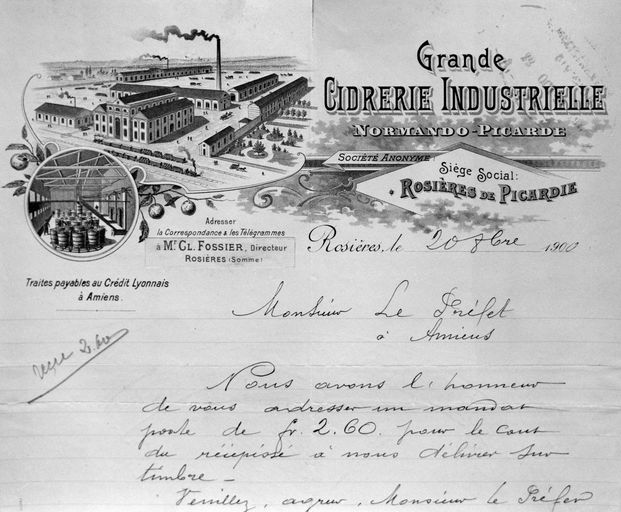 Grande
CIDRERIE INDUSTRIELLE
NORMANDO-PICARDE
SOCIÉTÉ ANONYME
Siège Social:
ROSIÈRES DE PICARDIE
Adresser
la Correspondance & les Télégrammes
à Mr. CL. FOSSIER, Directeur
ROSIÈRES (SOMME)
Rosières, le 20 8bre 1900
Traites payables au Crédit Lyonnais
à Amiens.
Monsieur Le Préfet
à Amiens
reçu 2.60
Nous avons l'honneur
de vous adresser un mandat
poste de fr. 2.60. pour le cout
du récépissé à nous délivrer sur
timbre -
Veuillez, agréer, Monsieur le Préfet